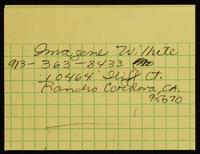 Imagene Wilhite
913-363-8433
10464 Iliff Ct.
Rancho Cordova, CA.
95670